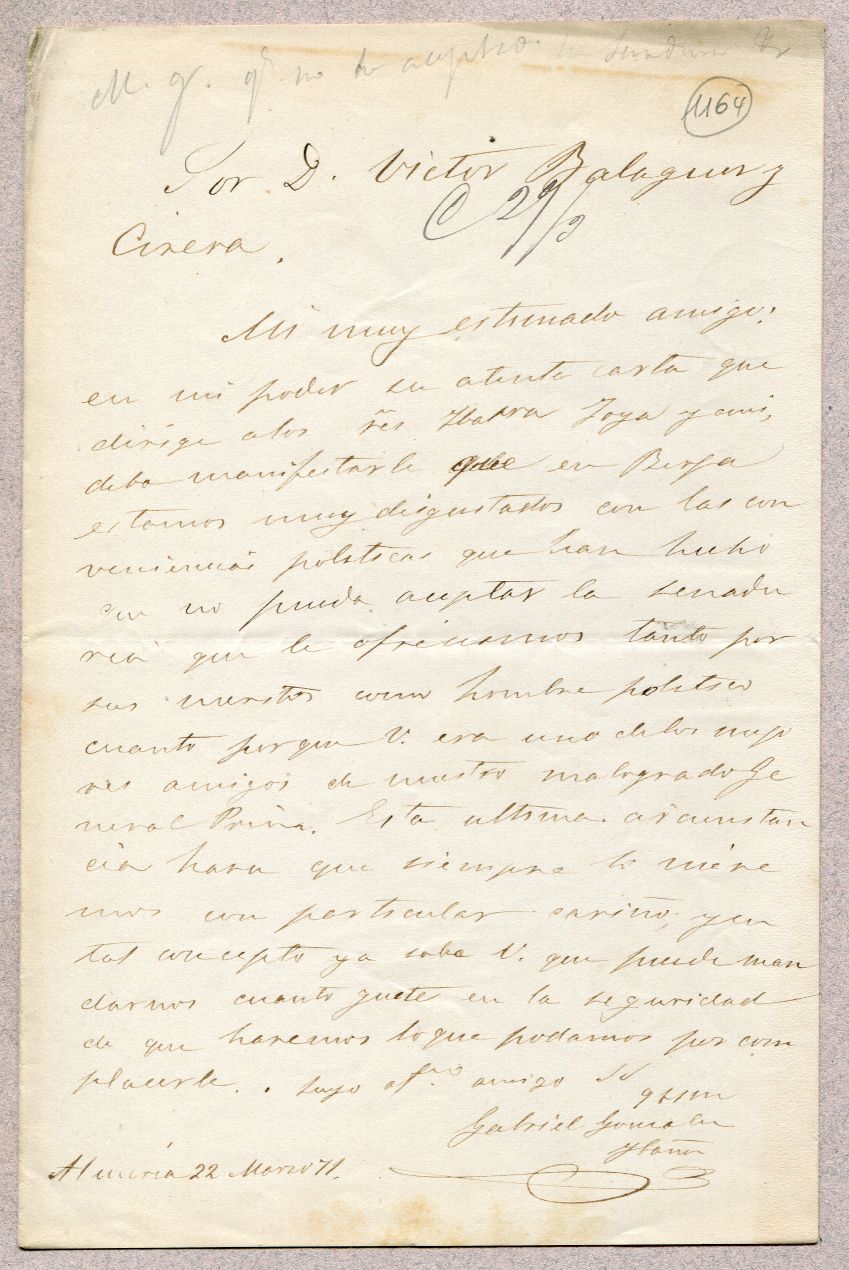 M. g. q. no ha aceptado la
1164
Sor D. Victor Balaguer y
C 29/3
Cirera.
Mi muy estimado amigo:
en mi poder su atenta carta que
dirige alos Sres Ibarra Joya y ami,
debo manifestarle que en Berja
estamos muy disgustados con las con
veniencias politicas que han hecho
que no pueda aceptar la senadu
ria que le ofreciamos tanto por
sus meritos como hombre politico
cuanto porque V. era uno delos mejo
res amigos de nuestro malogrado Ge
neral Prim. Esta ultima circunstan
cia hara que siempre le mire
mos con particular cariño, y en
tal concepto ya sabe V. que puede man
darnos cuanto guste en la seguridad
de que haremos loque podamos por com
placerle. Suyo af.mo amigo SS
q b s m
Gabriel Gonzalez
Ibañez
Almeria 22 Marzo 71.